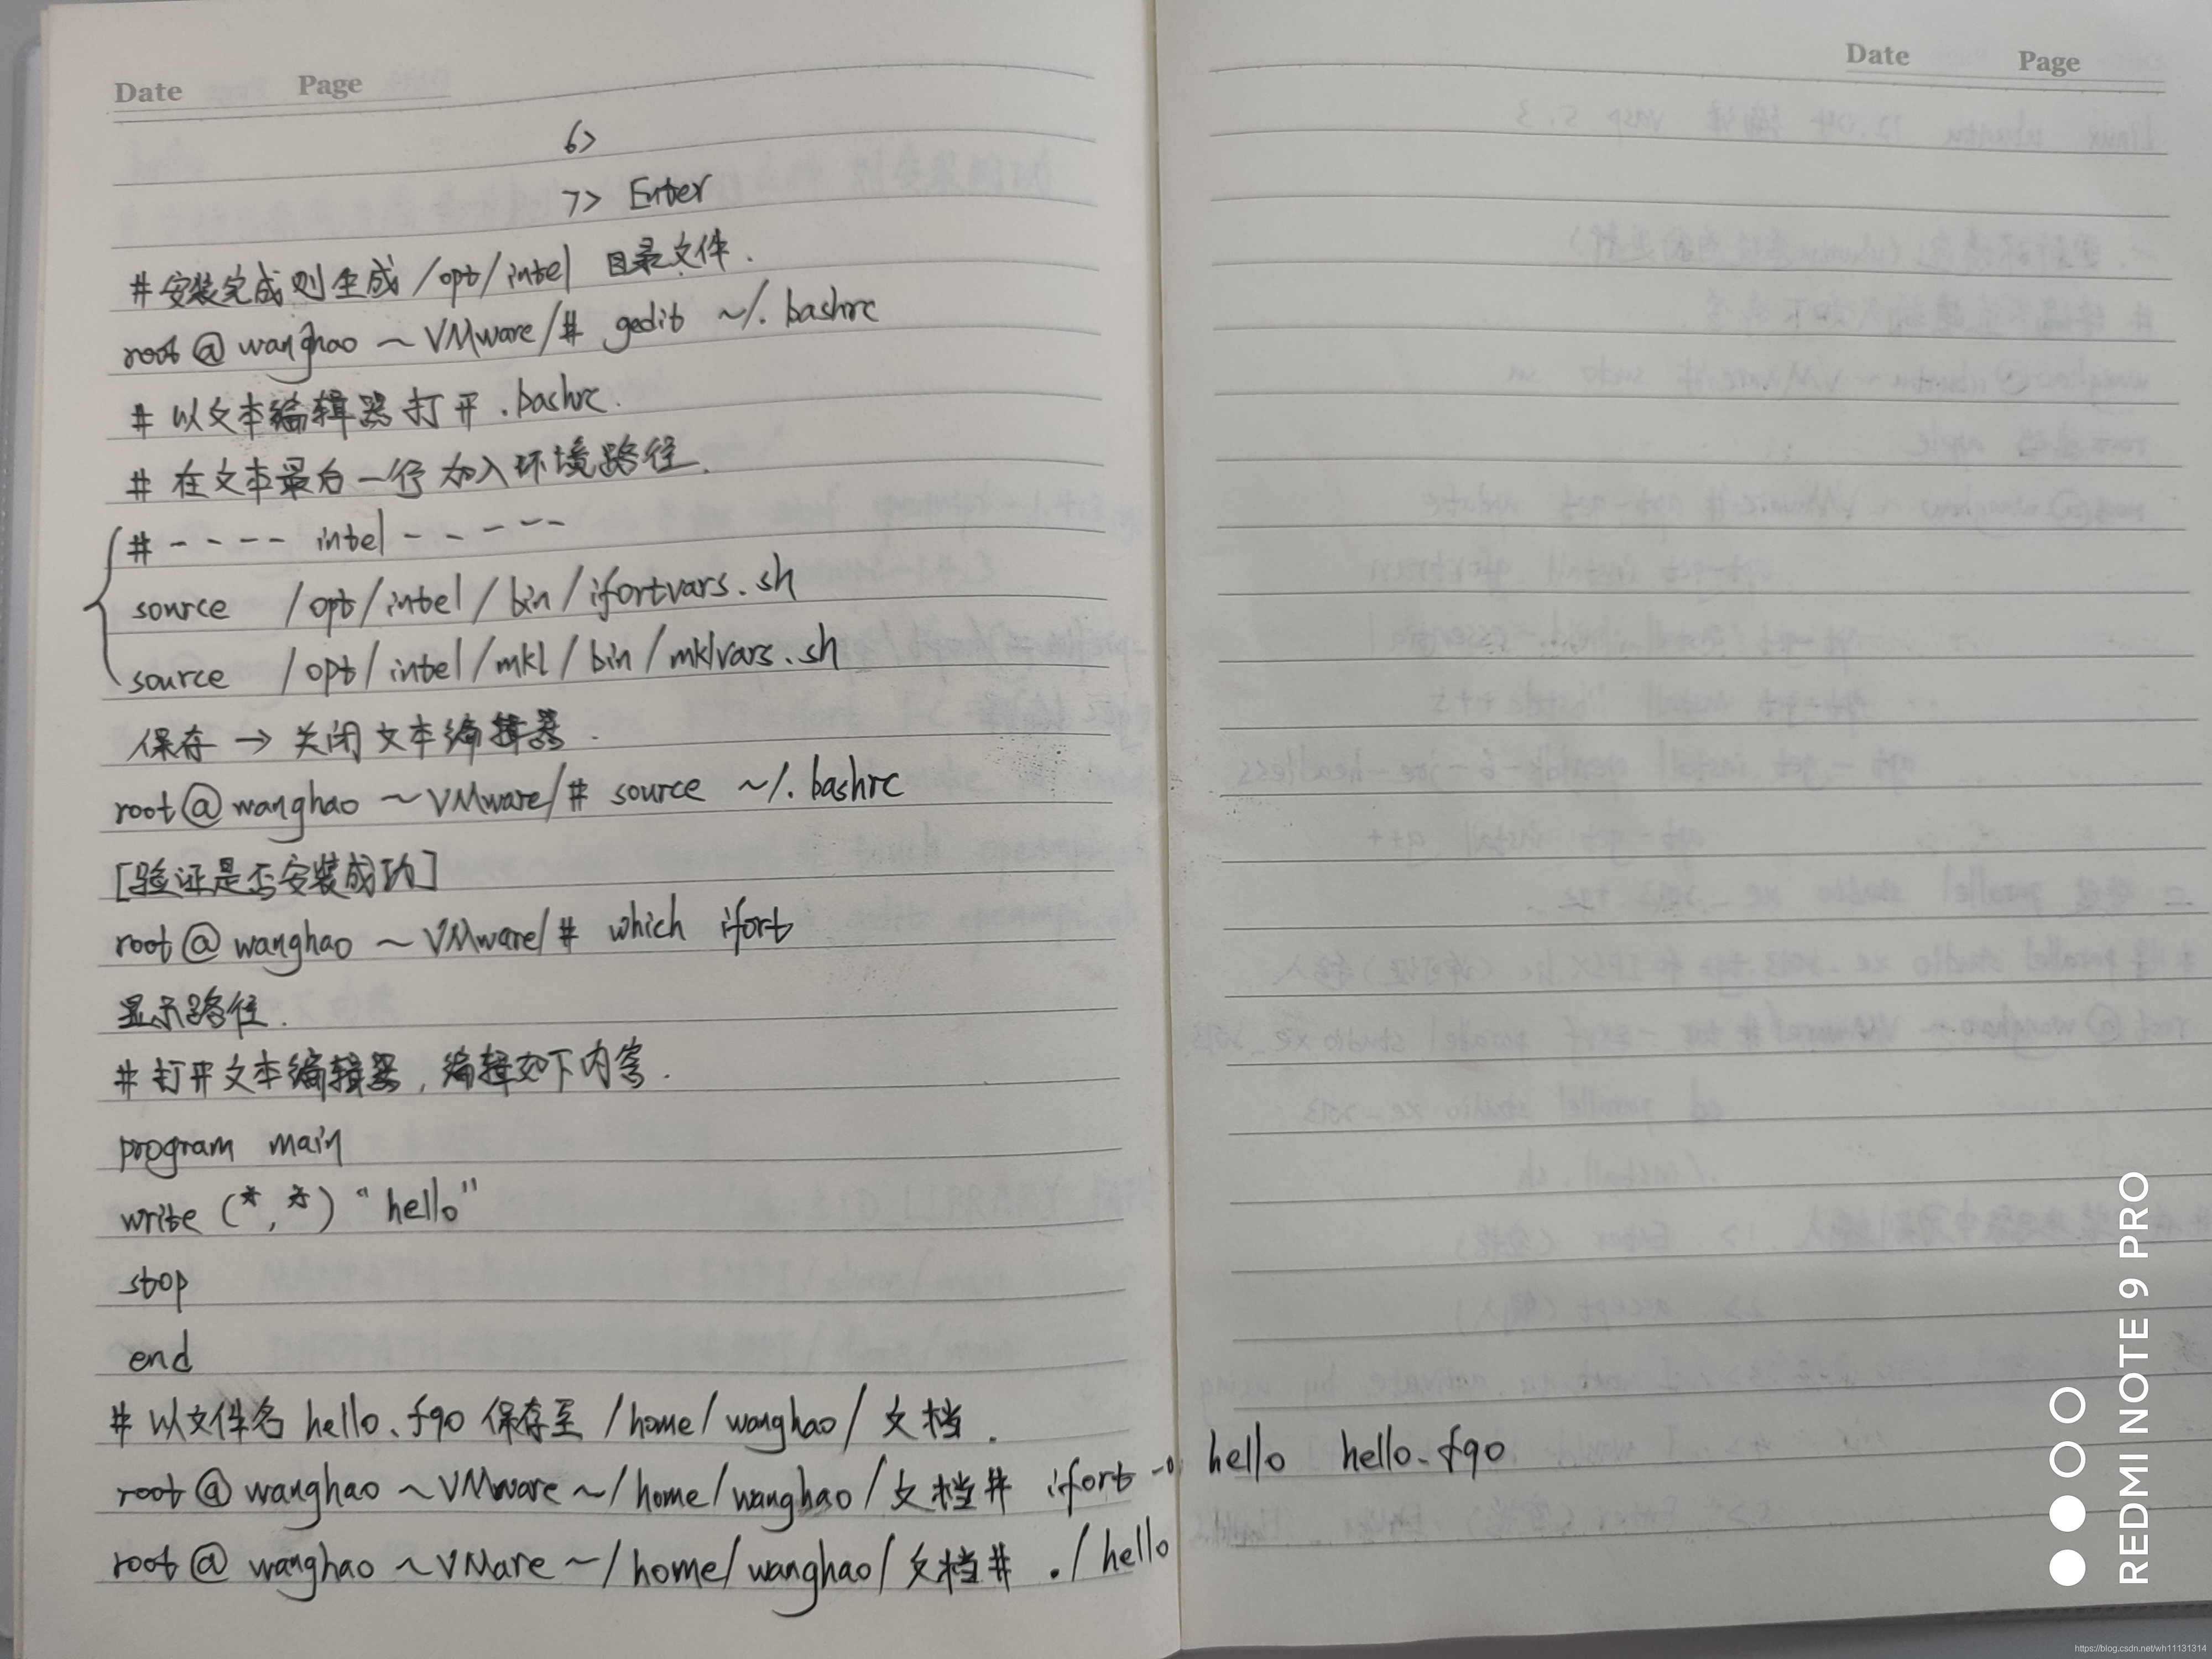 Date Page
6>
7> Enter
#安装完成则生成 /opt/intel 目录文件.
root@wanghao ~ VMware/# gedit ~/.bashrc
# 以文本编辑器打开 .bashrc.
# 在文本最后一行加入环境路径.
#---- intel -----
source /opt/intel/bin/ifortvars.sh
source /opt/intel/mkl/bin/mklvars.sh
保存 → 关闭文本编辑器.
root@wanghao ~VMware/# source ~/.bashrc
[验证是否安装成功]
root@wanghao ~ VMware/# which ifort
显示路径.
#打开文本编辑器, 编辑如下内容.
program main
write (*,*) "hello"
stop
end
# 以文件名 hello.f90 保存至 /home/wanghao/文档.
root@wanghao ~VMware ~/home/wanghao/文档# ifort -o hello hello.f90
root@wanghao ~VMare ~/home/wanghao/文档# ./hello
Date Page
REDMI NOTE 9 PRO
https://blog.csdn.net/wh11131314